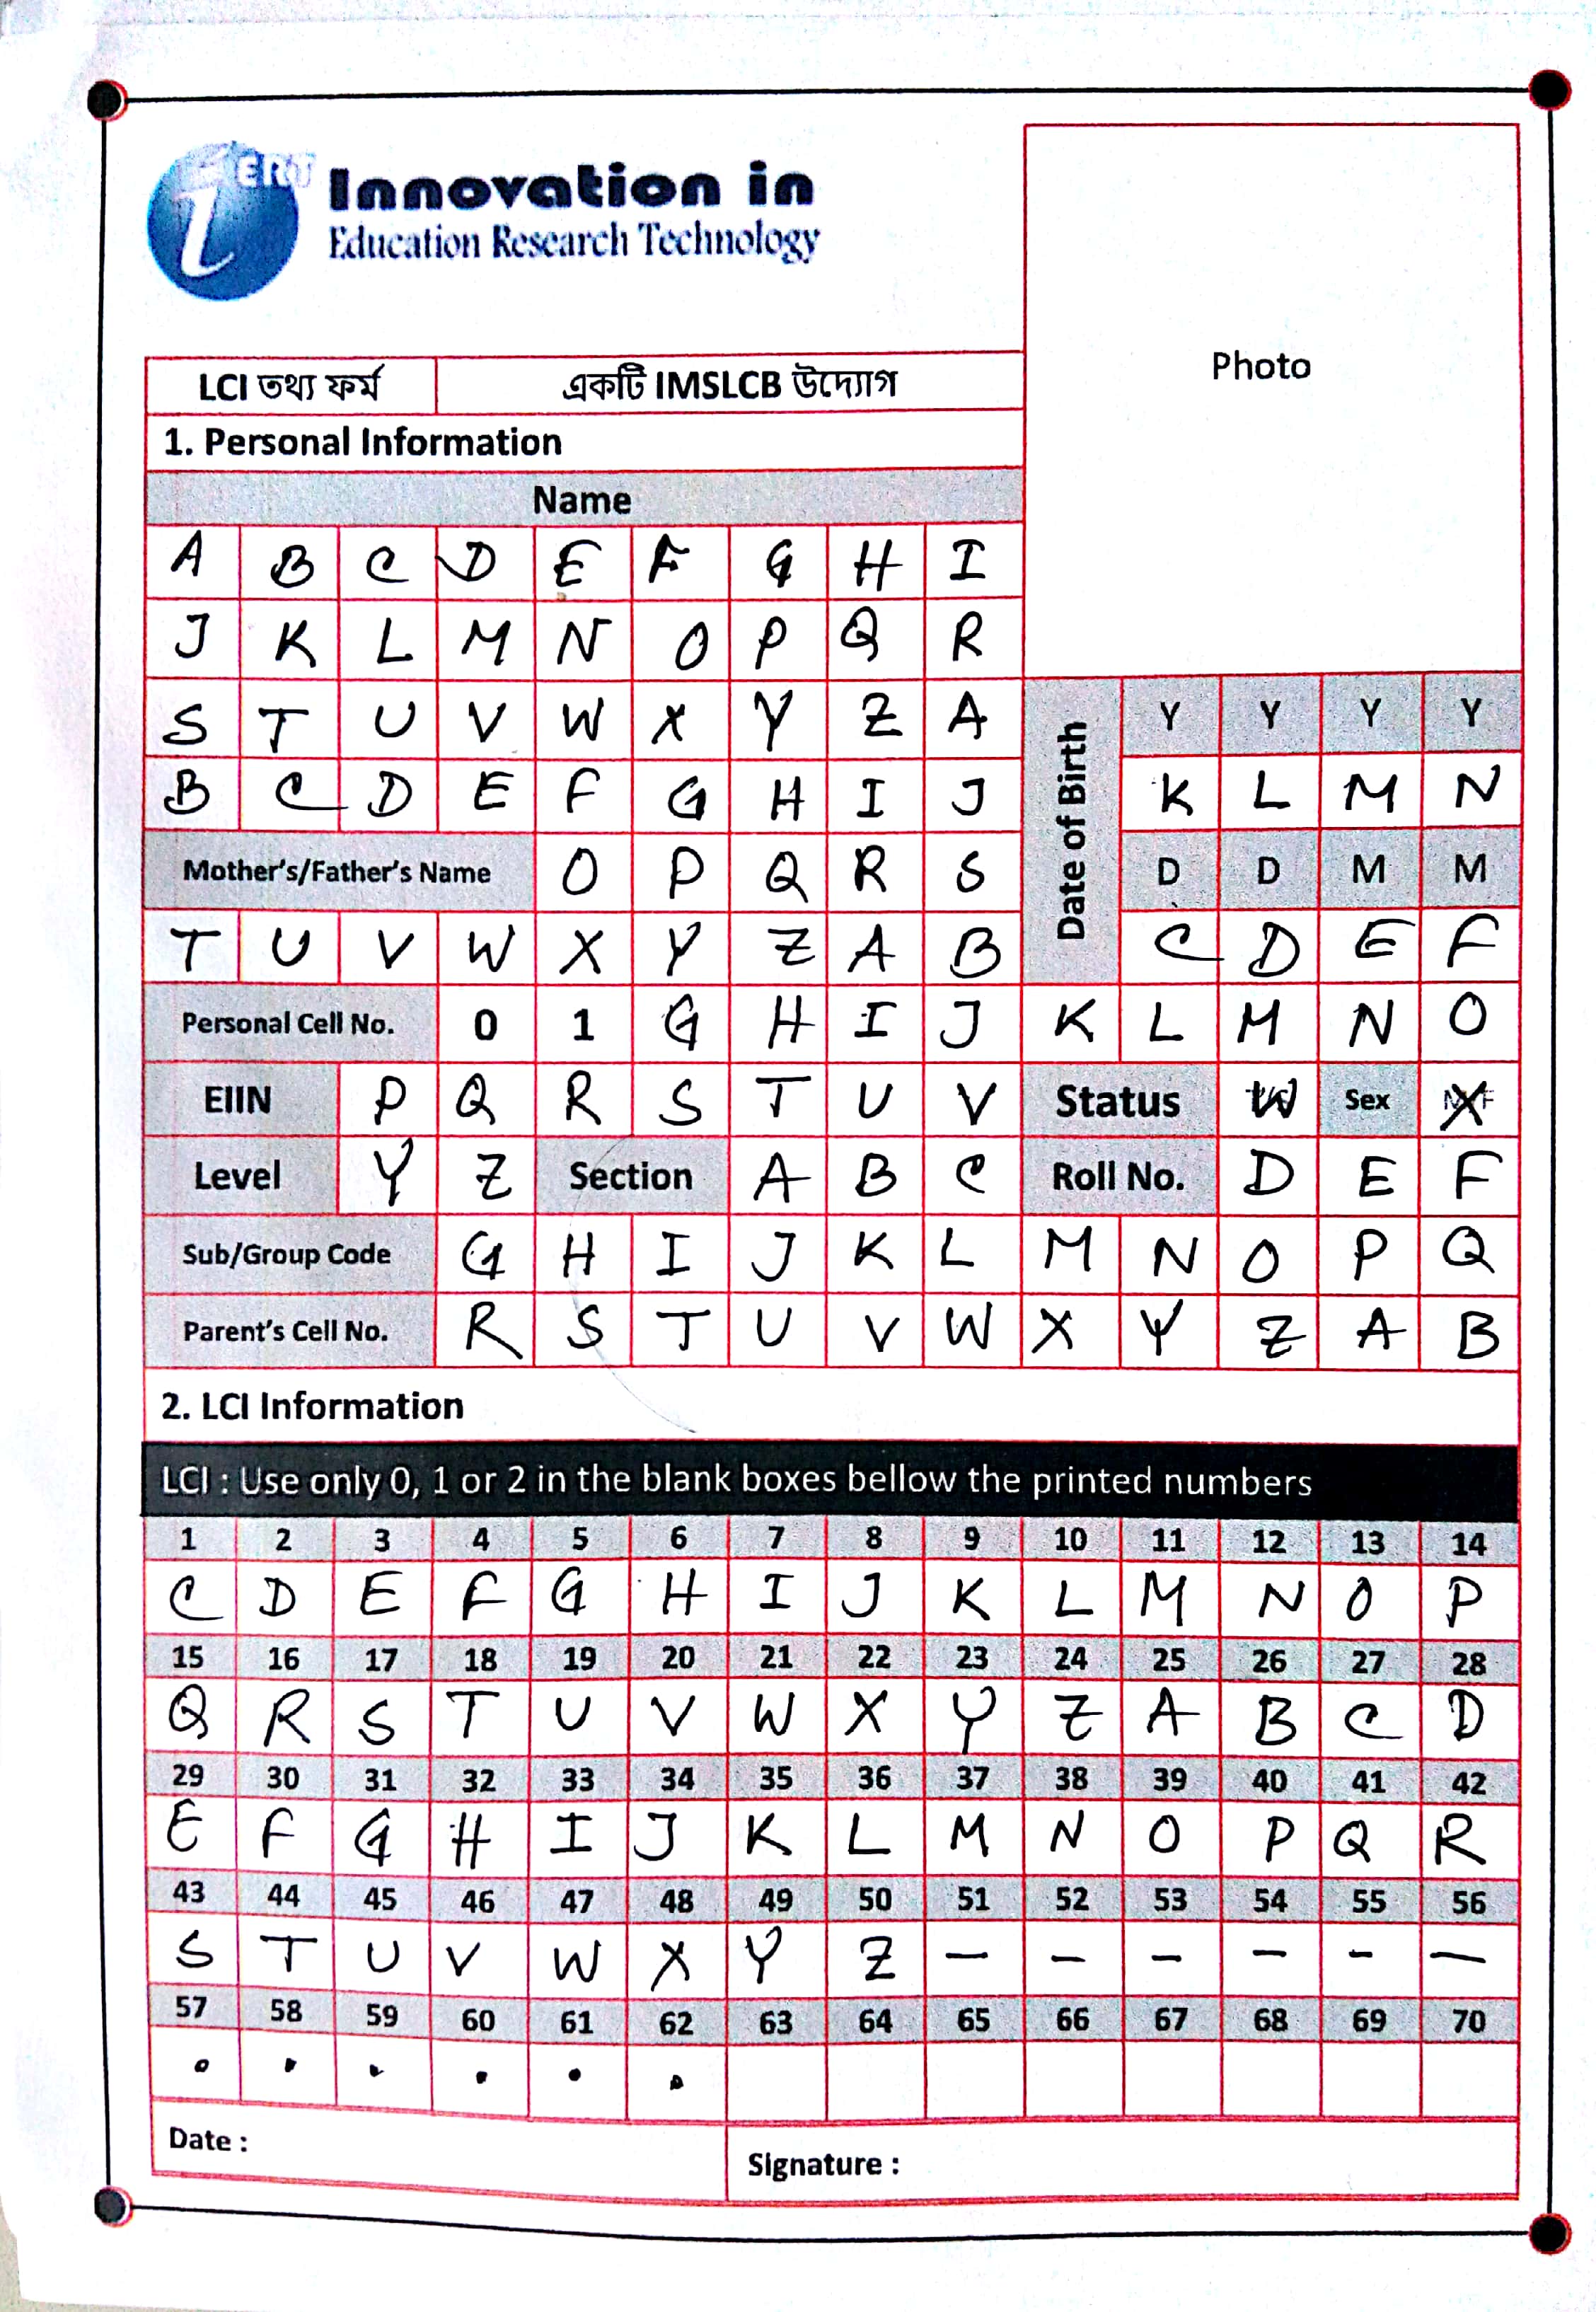 iERT Innovation in
Education Research Technology
Photo
LCI তথ্য ফর্ম একটি IMSLCB উদ্যোগ
1. Personal Information
Name
A B C D E F G H I
J K L M N O P Q R
S T U V W X Y Z A
Date of Birth Y Y Y Y
B C D E F G H I J K L M N
Mother's/Father's Name O P Q R S D D M M
T U V W X Y Z A B C D E F
Personal Cell No. 0 1 G H I J K L M N O
EIIN P Q R S T U V Status W Sex X
Level Y Z Section A B C Roll No. D E F
Sub/Group Code G H I J K L M N O P Q
Parent's Cell No. R S T U V W X Y Z A B
2. LCI Information
LCI : Use only 0, 1 or 2 in the blank boxes bellow the printed numbers
1 2 3 4 5 6 7 8 9 10 11 12 13 14
C D E F G H I J K L M N O P
15 16 17 18 19 20 21 22 23 24 25 26 27 28
Q R S T U V W X Y Z A B C D
29 30 31 32 33 34 35 36 37 38 39 40 41 42
E F G H I J K L M N O P Q R
43 44 45 46 47 48 49 50 51 52 53 54 55 56
S T U V W X Y Z — — — — — —
57 58 59 60 61 62 63 64 65 66 67 68 69 70
. . . . . .
Date :
Signature :